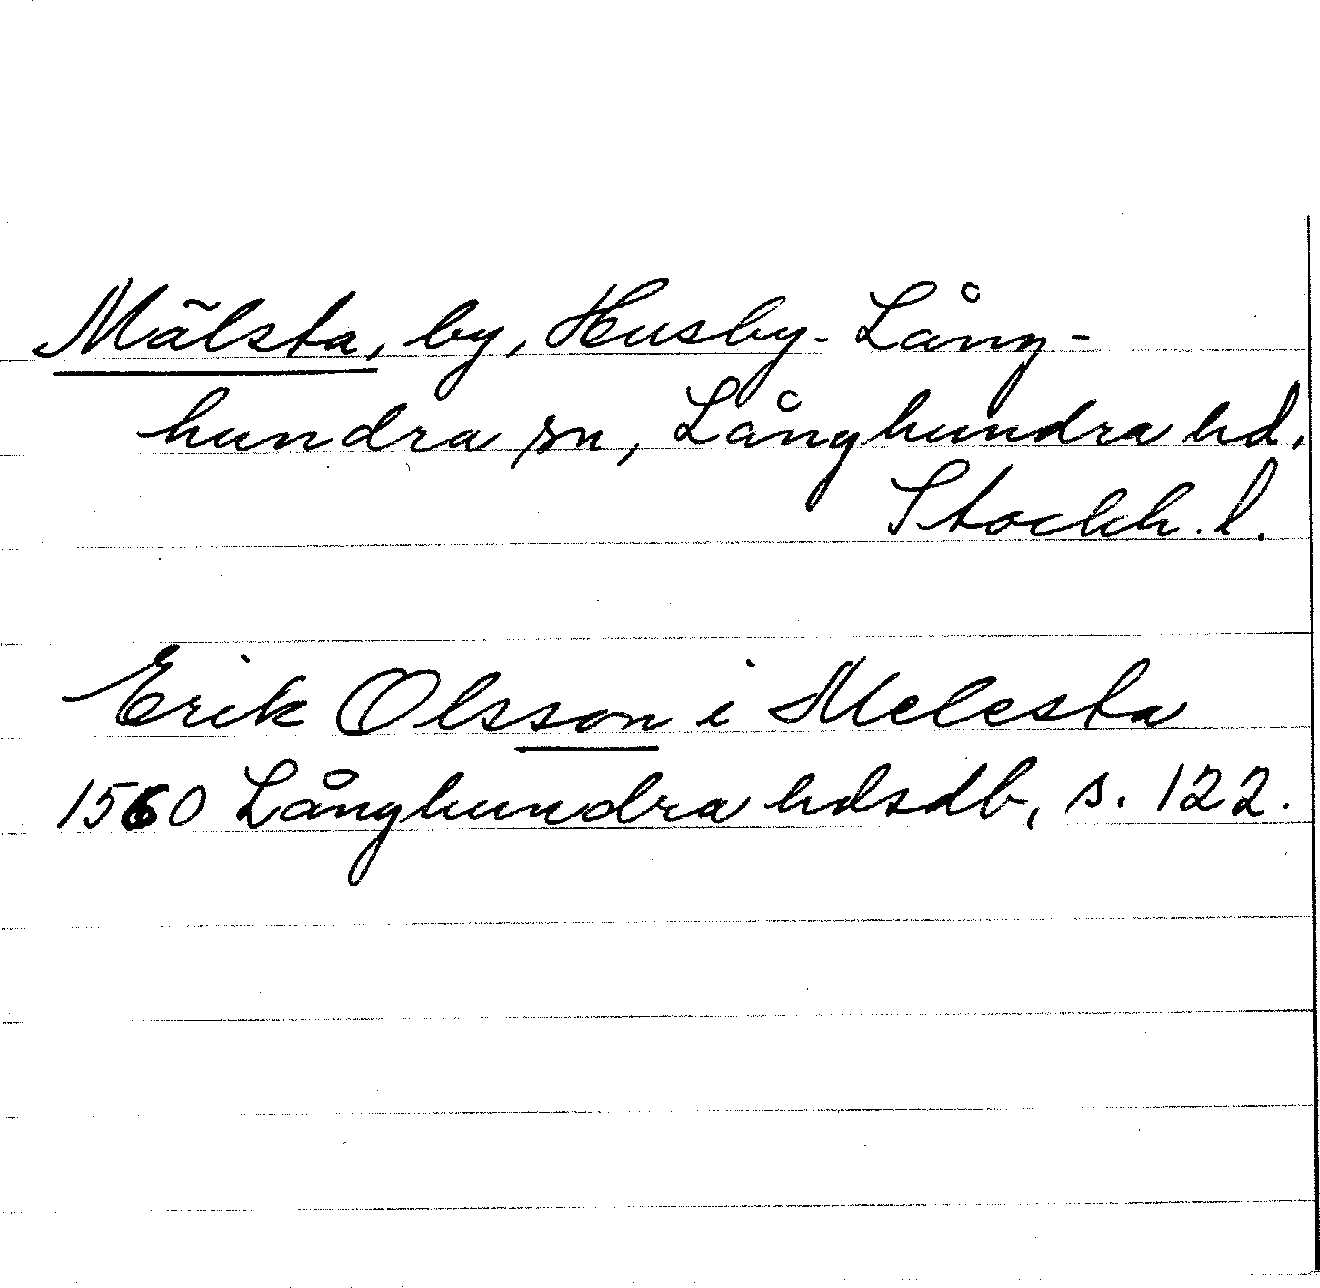 Mälsta, by, Husby-Lång-
hundra sn, Långhundra hd,
Stockh. l.
Erik Olsson i Melesta
1560 Långhundra hdsdb, s. 122.